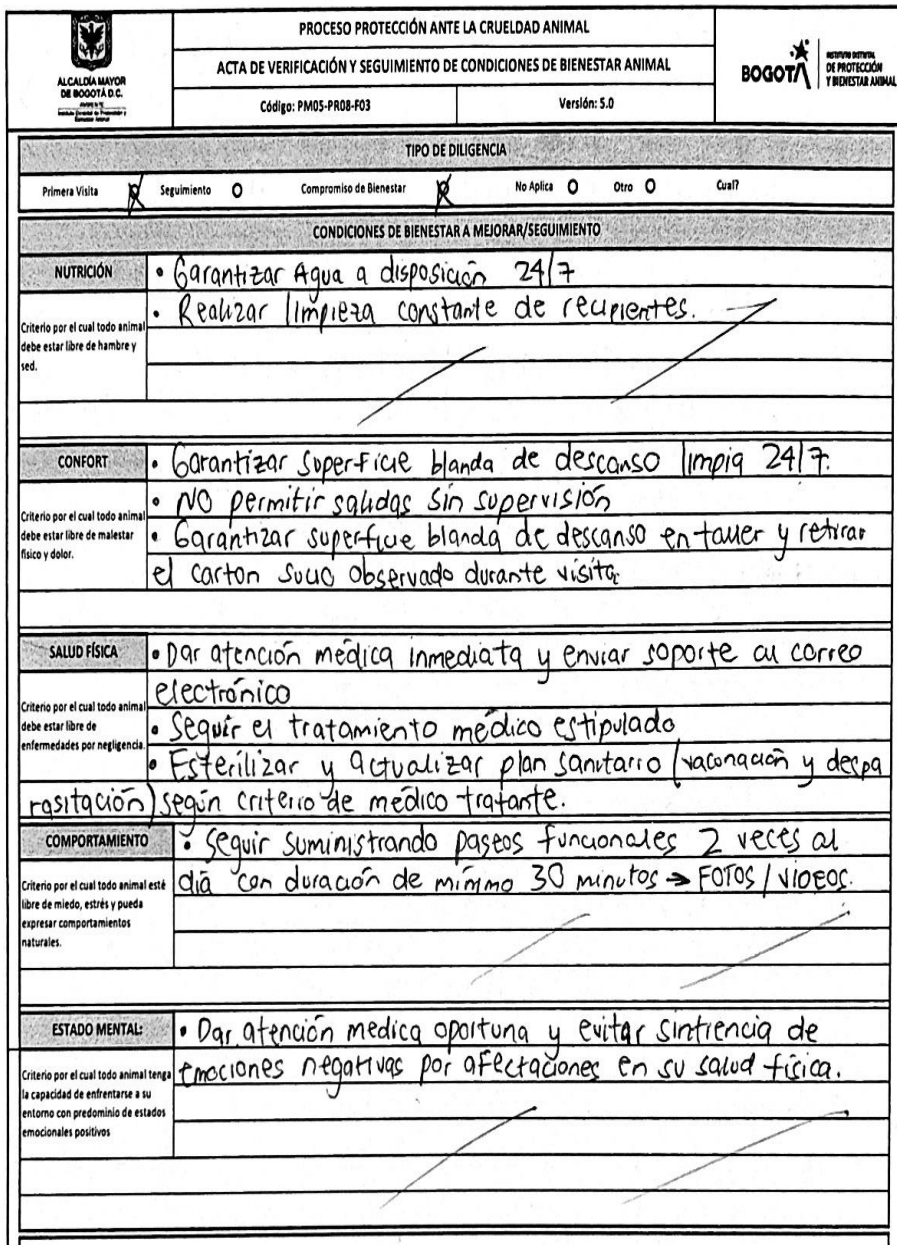 PROCESO PROTECCIÓN ANTE LA CRUELDAD ANIMAL
ALCALDÍA MAYOR
DE BOGOTÁ D.C.
ACTA DE VERIFICACIÓN Y SEGUIMIENTO DE CONDICIONES DE BIENESTAR ANIMAL
Código: PM05-PR08-F03
Versión: 5.0
BOGOTÁ
INSTITUTO DISTRITAL
DE PROTECCIÓN
Y BIENESTAR ANIMAL
TIPO DE DILIGENCIA
Primera Visita Seguimiento O Compromiso de Bienestar No Aplica O Otro O Cual?
CONDICIONES DE BIENESTAR A MEJORAR/SEGUIMIENTO
NUTRICIÓN
Criterio por el cual todo animal
debe estar libre de hambre y
sed.
• Garantizar Agua a disposición 24/7
• Realizar limpieza constante de recipientes.
CONFORT
Criterio por el cual todo animal
debe estar libre de malestar
físico y dolor.
• Garantizar superficie blanda de descanso limpia 24/7.
• NO permitir salidas sin supervisión
• Garantizar superficie blanda de descanso en taller y retirar
el carton sucio observado durante visita
SALUD FÍSICA
Criterio por el cual todo animal
debe estar libre de
enfermedades por negligencia.
• Dar atención médica inmediata y enviar soporte al correo
electrónico
• Seguir el tratamiento médico estipulado
• Esterilizar y actualizar plan sanitario (vacunación y despa
rasitación) según criterio de médico tratante.
COMPORTAMIENTO
Criterio por el cual todo animal esté
libre de miedo, estrés y pueda
expresar comportamientos
naturales.
• Seguir suministrando paseos funcionales 2 veces al
día con duración de mínimo 30 minutos → FOTOS / VIDEOS.
ESTADO MENTAL:
Criterio por el cual todo animal tenga
la capacidad de enfrentarse a su
entorno con predominio de estados
emocionales positivos
• Dar atención medica oportuna y evitar sintiencia de
emociones negativas por afectaciones en su salud física.